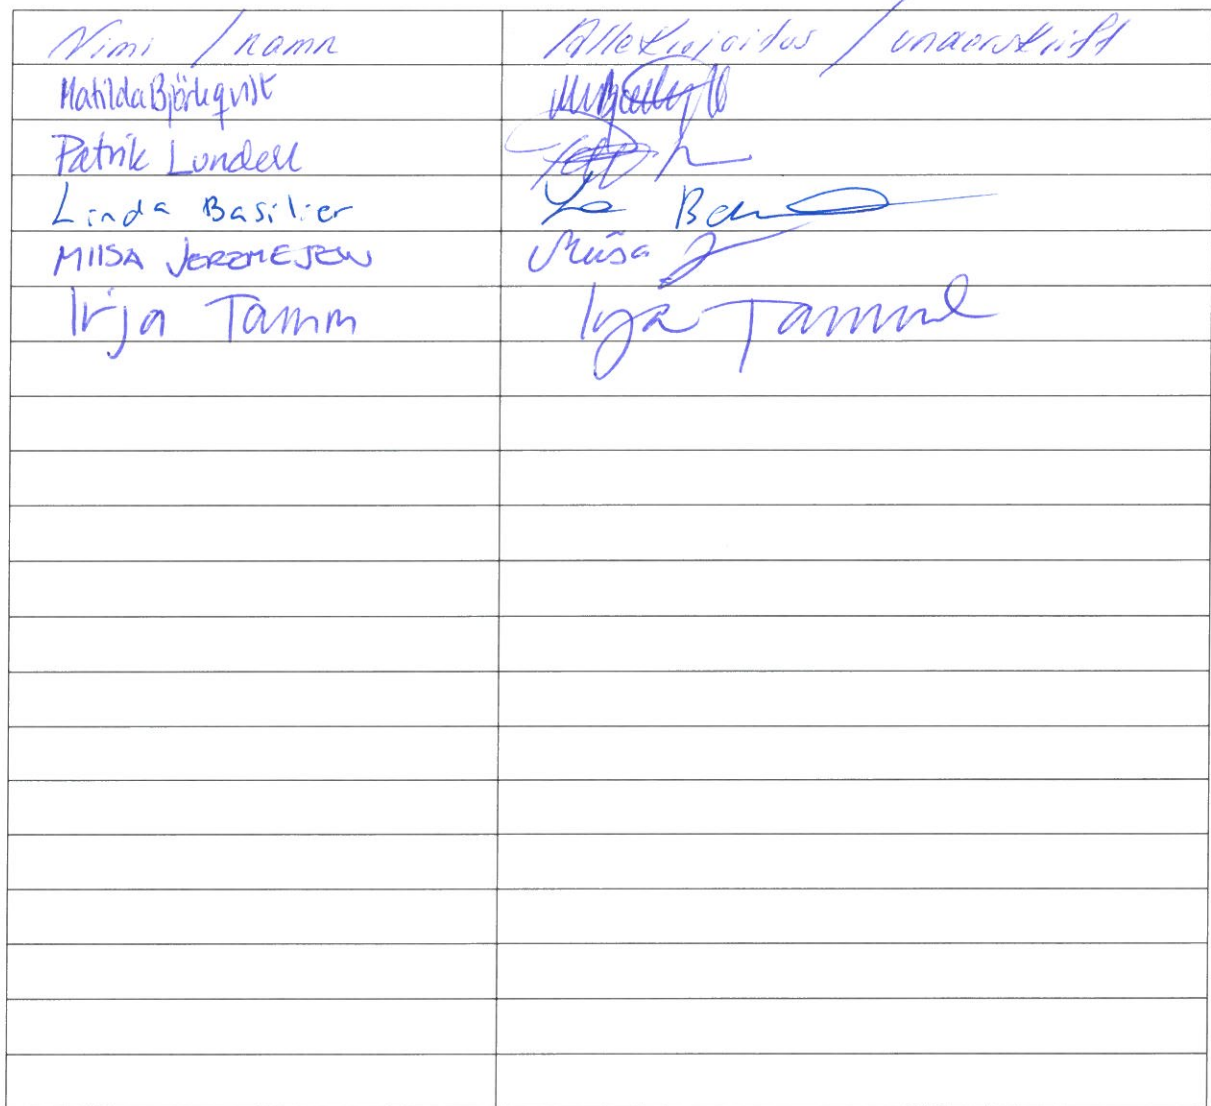 Nimi / namn Allekirjoitus / underskrift
Matilda Björkqvist
Patrik Lundell
Linda Basilier
MIISA JERZMEJEW Miisa J
Irja Tamm Irja Tamm